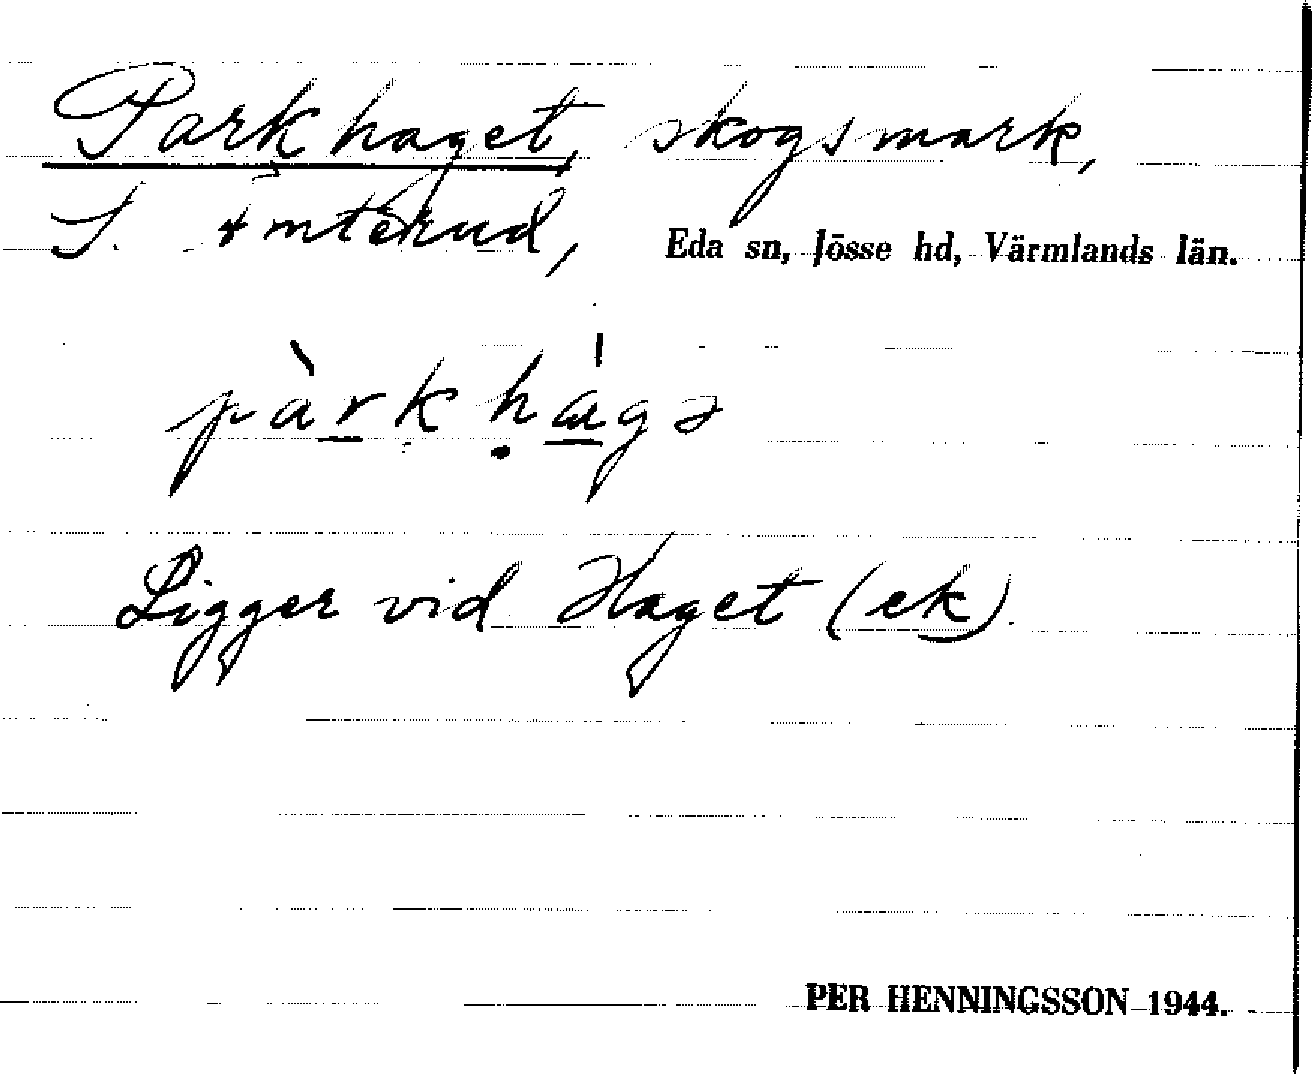 Parkhaget, skogsmark,
S. Åmterud, Eda sn, Jösse hd, Värmlands län.
pàrkhágə
Ligger vid Haget (ek).
PER HENNINGSSON 1944.